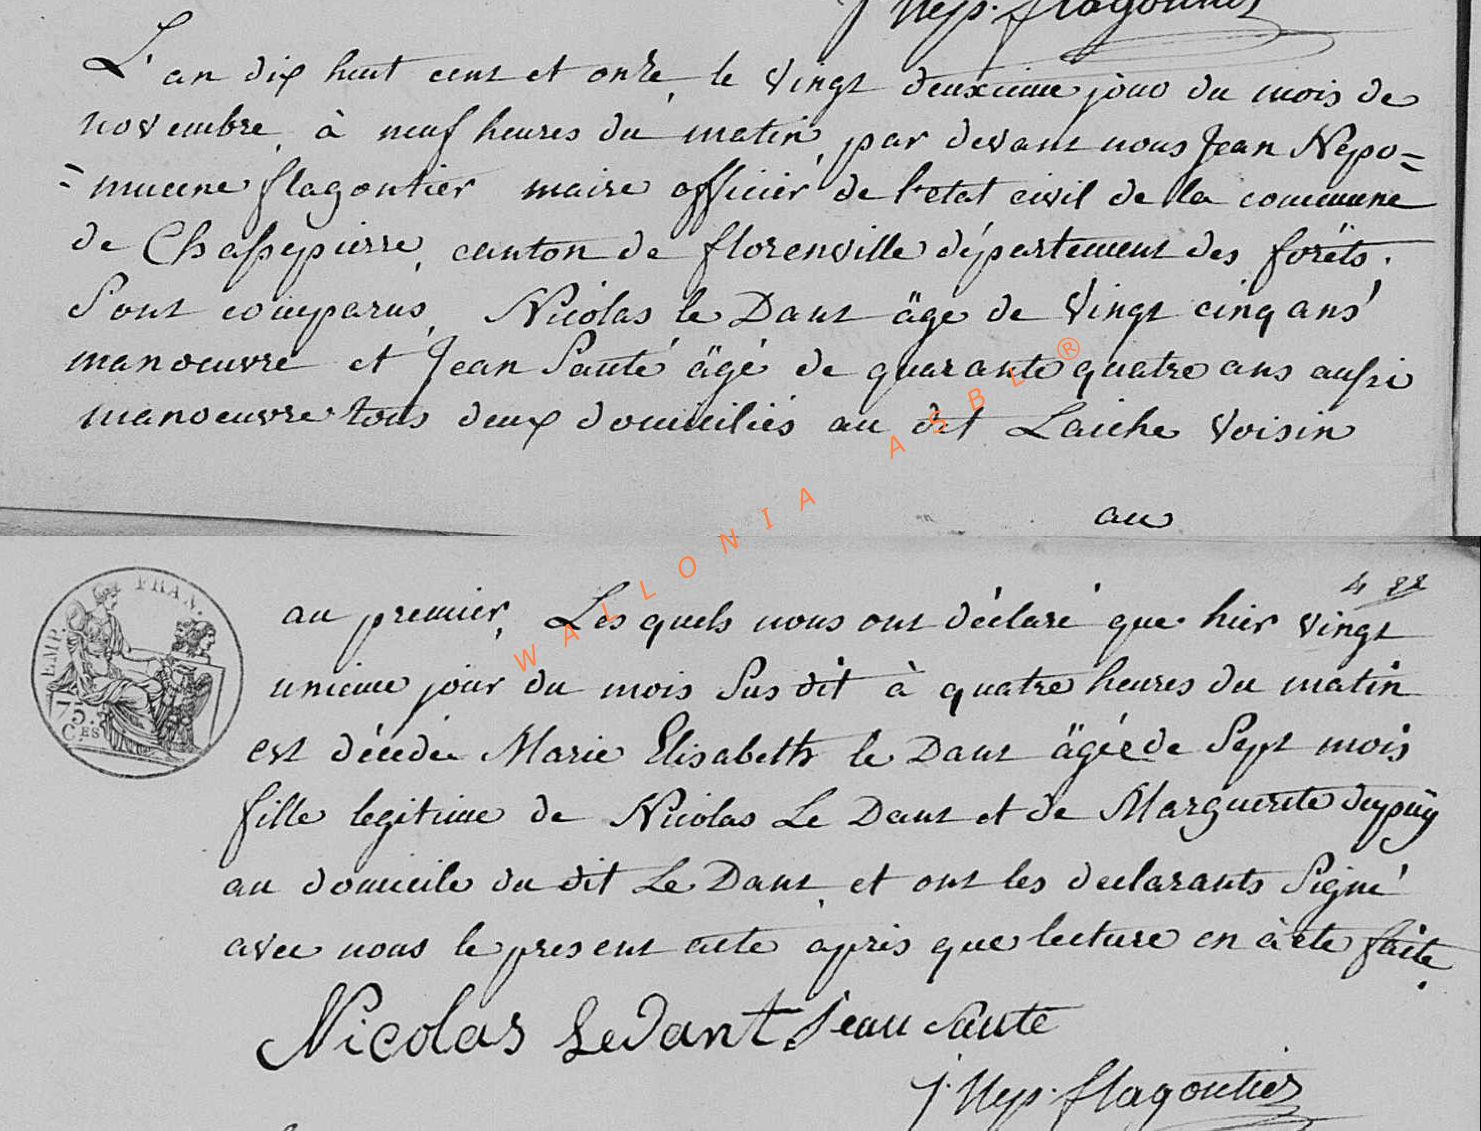 J Nep. flagontier
L'an dix huit cent et onze, le vingt deuxieme jour du mois de
novembre, à neuf heures du matin, par devant nous Jean Nepo=
=mucene flagontier maire officier de l'etat civil de la commune
de Chassepierre, canton de florenville département des forêts.
Sont comparus, Nicolas le Dant âge de vingt cinq ans
manoeuvre et Jean Santé âgé de quarante quatre ans aussi
manoeuvre tous deux domiciliés au dit Laiche voisin
au
4 88
au premier, Les quels nous ont déclaré que hier vingt
unieme jour du mois Sus dit à quatre heures du matin
est décédée Marie Elisabeth le Dant âgée de Sept mois
fille legitime de Nicolas Le Dant et de Marguerite dupuÿ
au domicile du dit Le Dant, et ont les declarants Signé
avec nous le present acte après que lecture en à ete faite.
Nicolas LeDant. Jean Santé
J. Nep. flagontier
EMP. FRAN.
75.
CES
WALLONIA ASBL ®